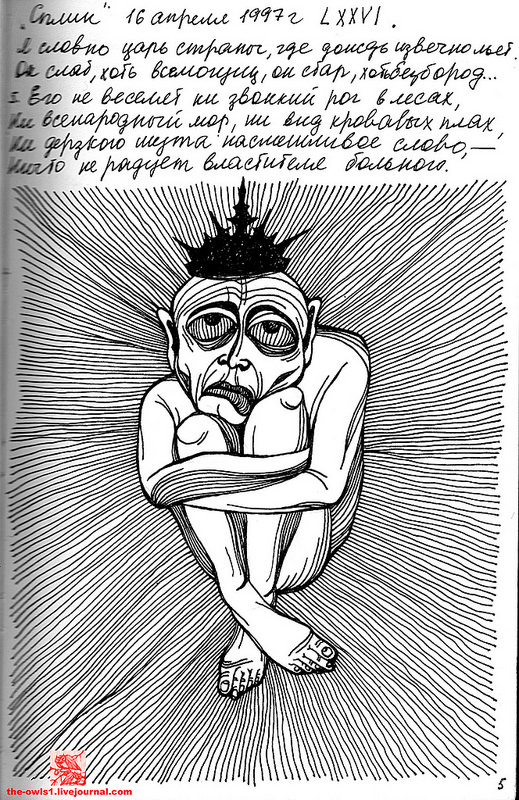 „Сплин" 16 апреля 1997 г LXXVI.
Я словно царь страны, где дождь извечно льет.
Он слаб, хоть всемогущ, он стар, хоть безбород...
Его не веселит ни звонкий рог в лесах,
Ни всенародный мор, ни вид кровавых плах,
Ни дерзкого шута насмешливое слово, —
Ничто не радует властителя больного.
5
the-owls1.livejournal.com